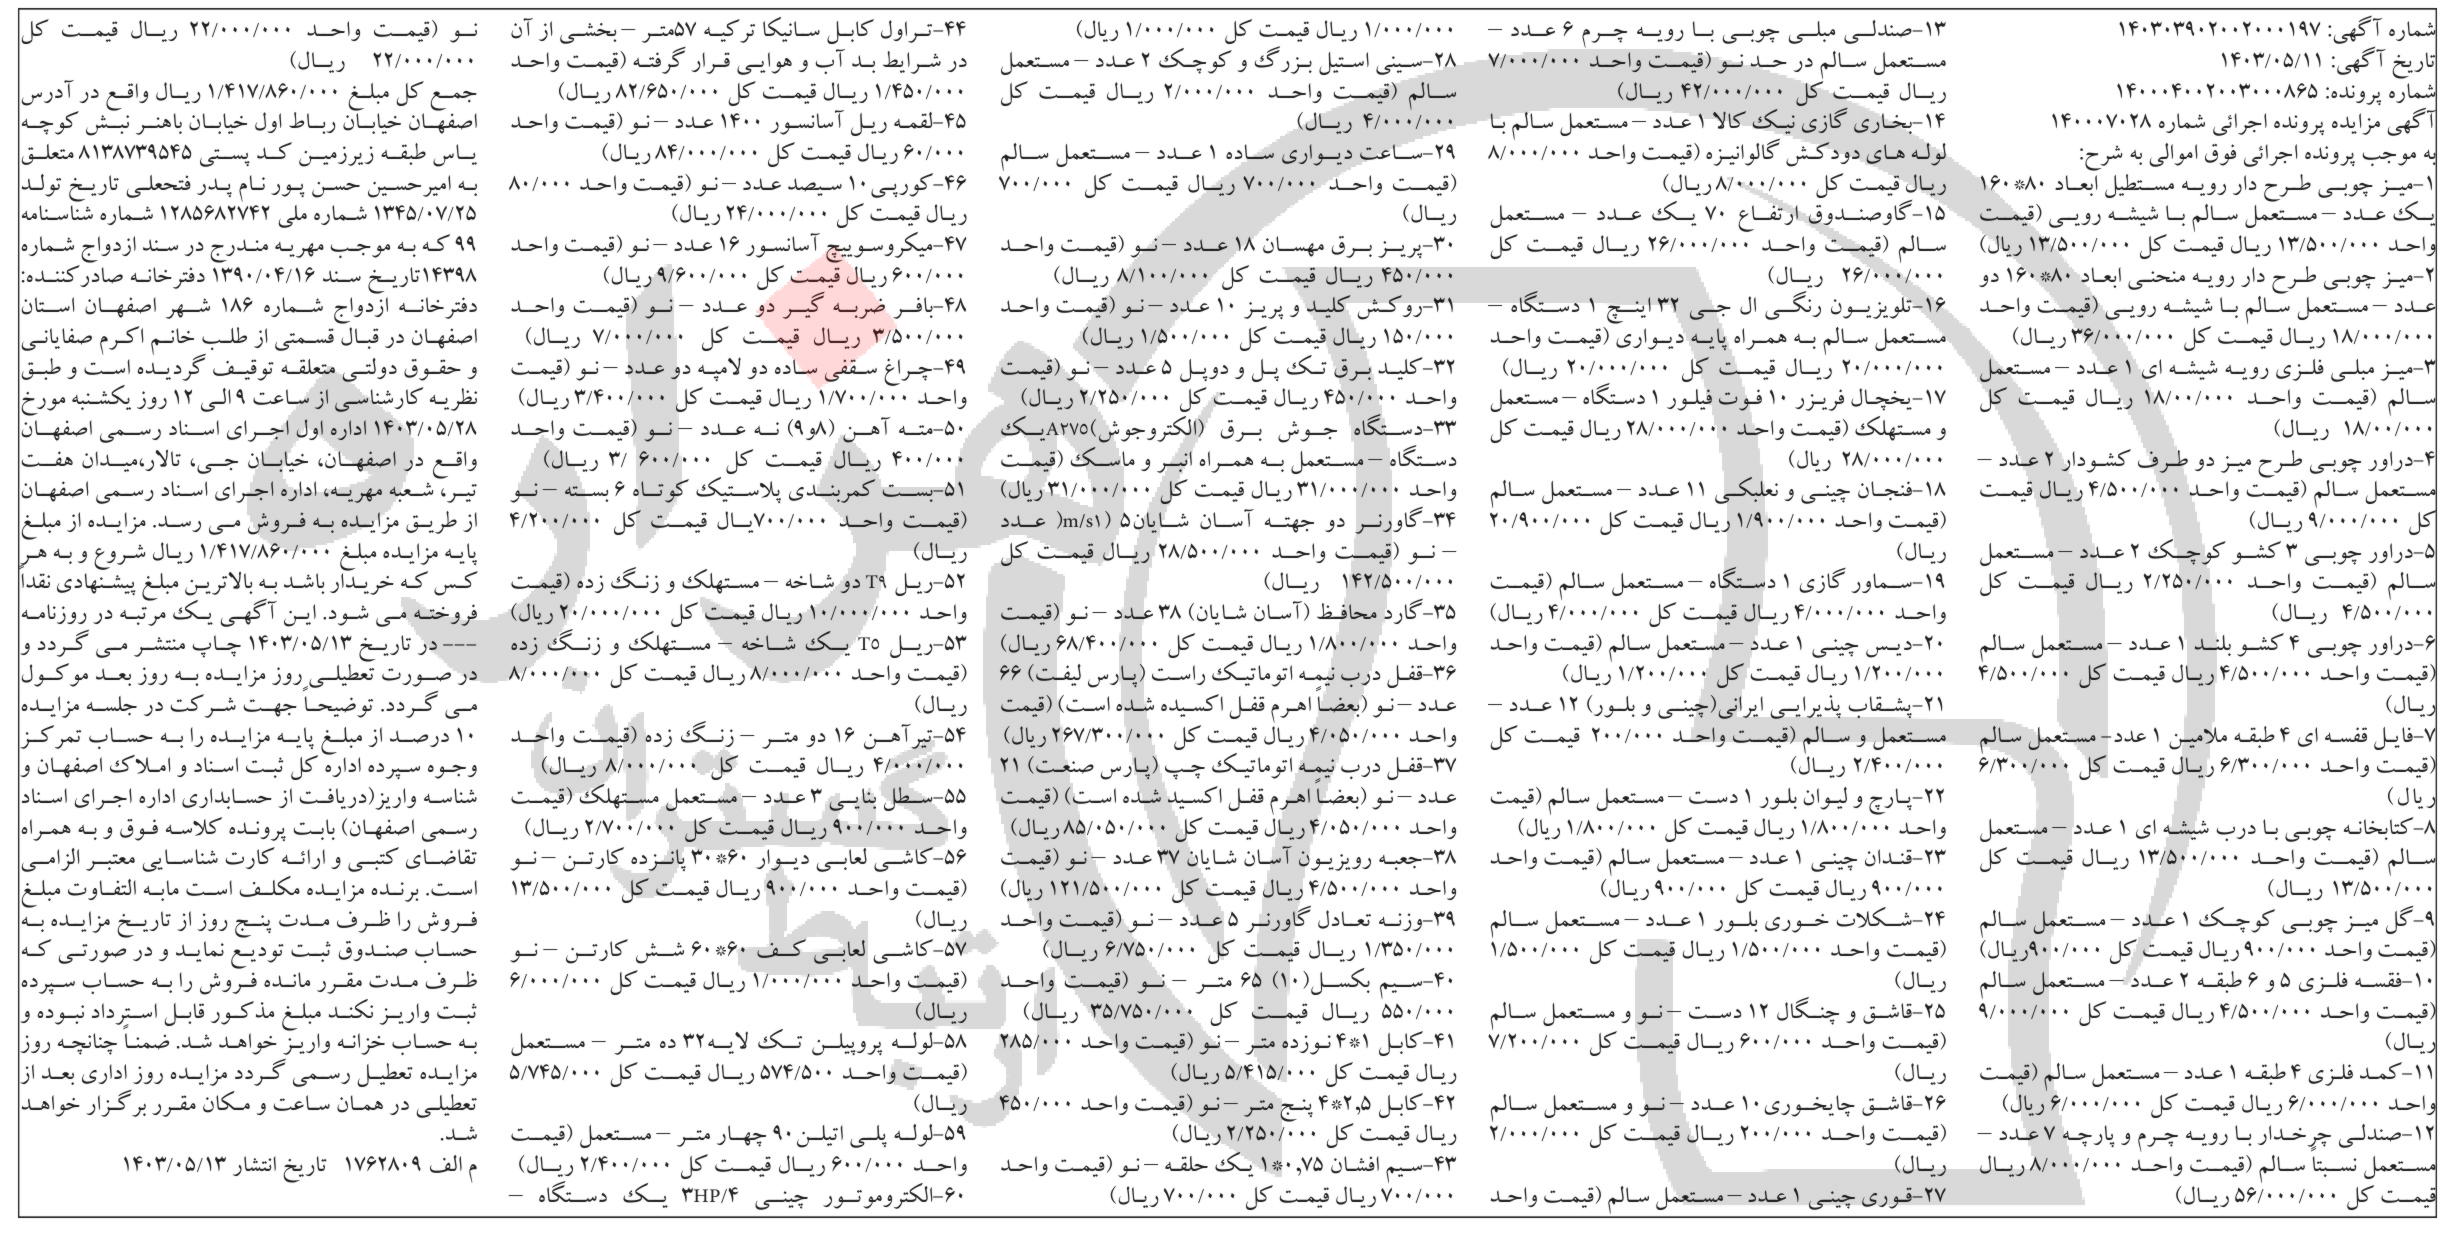 شماره آگهی: ۱۴۰۳۰۳۹۰۲۰۰۲۰۰۰۱۹۷
تاریخ آگهی: ۱۴۰۳/۰۵/۱۱
شماره پرونده: ۱۴۰۰۰۴۰۰۲۰۰۳۰۰۰۸۶۵
آگهی مزایده پرونده اجرائی شماره ۱۴۰۰۰۷۰۲۸
به موجب پرونده اجرائی فوق اموالی به شرح:
۱-میز چوبی طرح دار رویه مستطیل ابعاد ۸۰*۱۶۰
یک عدد – مستعمل سالم با شیشه رویی (قیمت
واحد ۱۳/۵۰۰/۰۰۰ ریال قیمت کل ۱۳/۵۰۰/۰۰۰ ریال)
۲-میز چوبی طرح دار رویه منحنی ابعاد ۸۰*۱۶۰ دو
عدد – مستعمل سالم با شیشه رویی (قیمت واحد
۱۸/۰۰۰/۰۰۰ ریال قیمت کل ۳۶/۰۰۰/۰۰۰ ریال)
۳-میز مبلی فلزی رویه شیشه ای ۱ عدد – مستعمل
سالم (قیمت واحد ۱۸/۰۰/۰۰۰ ریال قیمت کل
۱۸/۰۰/۰۰۰ ریال)
۴-دراور چوبی طرح میز دو طرف کشودار ۲ عدد –
مستعمل سالم (قیمت واحد ۴/۵۰۰/۰۰۰ ریال قیمت
کل ۹/۰۰۰/۰۰۰ ریال)
۵-دراور چوبی ۳ کشو کوچک ۲ عدد – مستعمل
سالم (قیمت واحد ۲/۲۵۰/۰۰۰ ریال قیمت کل
۴/۵۰۰/۰۰۰ ریال)
۶-دراور چوبی ۴ کشو بلند ۱ عدد – مستعمل سالم
(قیمت واحد ۴/۵۰۰/۰۰۰ ریال قیمت کل ۴/۵۰۰/۰۰۰
ریال)
۷-فایل قفسه ای ۴ طبقه ملامین ۱ عدد- مستعمل سالم
(قیمت واحد ۶/۳۰۰/۰۰۰ ریال قیمت کل ۶/۳۰۰/۰۰۰
ریال)
۸-کتابخانه چوبی با درب شیشه ای ۱ عدد – مستعمل
سالم (قیمت واحد ۱۳/۵۰۰/۰۰۰ ریال قیمت کل
۱۳/۵۰۰/۰۰۰ ریال)
۹-گل میز چوبی کوچک ۱ عدد – مستعمل سالم
(قیمت واحد ۹۰۰/۰۰۰ ریال قیمت کل ۹۰۰/۰۰۰ریال)
۱۰-قفسه فلزی ۵ و ۶ طبقه ۲ عدد – مستعمل سالم
(قیمت واحد ۴/۵۰۰/۰۰۰ ریال قیمت کل ۹/۰۰۰/۰۰۰
ریال)
۱۱-کمد فلزی ۴ طبقه ۱ عدد – مستعمل سالم (قیمت
واحد ۶/۰۰۰/۰۰۰ ریال قیمت کل ۶/۰۰۰/۰۰۰ ریال)
۱۲-صندلی چرخدار با رویه چرم و پارچه ۷ عدد –
مستعمل نسبتاً سالم (قیمت واحد ۸/۰۰۰/۰۰۰ ریال
قیمت کل ۵۶/۰۰۰/۰۰۰ ریال)
۱۳-صندلی مبلی چوبی با رویه چرم ۶ عدد –
مستعمل سالم در حد نو (قیمت واحد ۷/۰۰۰/۰۰۰
ریال قیمت کل ۴۲/۰۰۰/۰۰۰ ریال)
۱۴-بخاری گازی نیک کالا ۱ عدد – مستعمل سالم با
لوله های دودکش گالوانیزه (قیمت واحد ۸/۰۰۰/۰۰۰
ریال قیمت کل ۸/۰۰۰/۰۰۰ ریال)
۱۵-گاوصندوق ارتفاع ۷۰ یک عدد – مستعمل
سالم (قیمت واحد ۲۶/۰۰۰/۰۰۰ ریال قیمت کل
۲۶/۰۰۰/۰۰۰ ریال)
۱۶-تلویزیون رنگی ال جی ۳۲ اینچ ۱ دستگاه –
مستعمل سالم به همراه پایه دیواری (قیمت واحد
۲۰/۰۰۰/۰۰۰ ریال قیمت کل ۲۰/۰۰۰/۰۰۰ ریال)
۱۷-یخچال فریزر ۱۰ فوت فیلور ۱ دستگاه – مستعمل
و مستهلک (قیمت واحد ۲۸/۰۰۰/۰۰۰ ریال قیمت کل
۲۸/۰۰۰/۰۰۰ ریال)
۱۸-فنجان چینی و نعلبکی ۱۱ عدد – مستعمل سالم
(قیمت واحد ۱/۹۰۰/۰۰۰ ریال قیمت کل ۲۰/۹۰۰/۰۰۰
ریال)
۱۹-سماور گازی ۱ دستگاه – مستعمل سالم (قیمت
واحد ۴/۰۰۰/۰۰۰ ریال قیمت کل ۴/۰۰۰/۰۰۰ ریال)
۲۰-دیس چینی ۱ عدد – مستعمل سالم (قیمت واحد
۱/۲۰۰/۰۰۰ ریال قیمت کل ۱/۲۰۰/۰۰۰ ریال)
۲۱-پشقاب پذیرایی ایرانی(چینی و بلور) ۱۲ عدد –
مستعمل و سالم (قیمت واحد ۲۰۰/۰۰۰ قیمت کل
۲/۴۰۰/۰۰۰ ریال)
۲۲-پارچ و لیوان بلور ۱ دست – مستعمل سالم (قیمت
واحد ۱/۸۰۰/۰۰۰ ریال قیمت کل ۱/۸۰۰/۰۰۰ ریال)
۲۳-قندان چینی ۱ عدد – مستعمل سالم (قیمت واحد
۹۰۰/۰۰۰ ریال قیمت کل ۹۰۰/۰۰۰ ریال)
۲۴-شکلات خوری بلور ۱ عدد – مستعمل سالم
(قیمت واحد ۱/۵۰۰/۰۰۰ ریال قیمت کل ۱/۵۰۰/۰۰۰
ریال)
۲۵-قاشق و چنگال ۱۲ دست – نو و مستعمل سالم
(قیمت واحد ۶۰۰/۰۰۰ ریال قیمت کل ۷/۲۰۰/۰۰۰
ریال)
۲۶-قاشق چایخوری ۱۰ عدد – نو و مستعمل سالم
(قیمت واحد ۲۰۰/۰۰۰ ریال قیمت کل ۲/۰۰۰/۰۰۰
ریال)
۲۷-قوری چینی ۱ عدد – مستعمل سالم (قیمت واحد
۱/۰۰۰/۰۰۰ ریال قیمت کل ۱/۰۰۰/۰۰۰ ریال)
۲۸-سینی استیل بزرگ و کوچک ۲ عدد – مستعمل
سالم (قیمت واحد ۲/۰۰۰/۰۰۰ ریال قیمت کل
۴/۰۰۰/۰۰۰ ریال)
۲۹-ساعت دیواری ساده ۱ عدد – مستعمل سالم
(قیمت واحد ۷۰۰/۰۰۰ ریال قیمت کل ۷۰۰/۰۰۰
ریال)
۳۰-پریز برق مهسان ۱۸ عدد – نو (قیمت واحد
۴۵۰/۰۰۰ ریال قیمت کل ۸/۱۰۰/۰۰۰ ریال)
۳۱-روکش کلید و پریز ۱۰ عدد – نو (قیمت واحد
۱۵۰/۰۰۰ ریال قیمت کل ۱/۵۰۰/۰۰۰ ریال)
۳۲-کلید برق تک پل و دوپل ۵ عدد – نو (قیمت
واحد ۴۵۰/۰۰۰ ریال قیمت کل ۲/۲۵۰/۰۰۰ ریال)
۳۳-دستگاه جوش برق (الکتروجوش)A۲۷۵یک
دستگاه – مستعمل به همراه انبر و ماسک (قیمت
واحد ۳۱/۰۰۰/۰۰۰ ریال قیمت کل ۳۱/۰۰۰/۰۰۰ ریال)
۳۴-گاورنر دو جهته آسان شایان۵ (m/s۱( عدد
– نو (قیمت واحد ۲۸/۵۰۰/۰۰۰ ریال قیمت کل
۱۴۲/۵۰۰/۰۰۰ ریال)
۳۵-گارد محافظ (آسان شایان) ۳۸ عدد – نو (قیمت
واحد ۱/۸۰۰/۰۰۰ ریال قیمت کل ۶۸/۴۰۰/۰۰۰ ریال)
۳۶-قفل درب نیمه اتوماتیک راست (پارس لیفت) ۶۶
عدد – نو (بعضاً اهرم قفل اکسیده شده است) (قیمت
واحد ۴/۰۵۰/۰۰۰ ریال قیمت کل ۲۶۷/۳۰۰/۰۰۰ ریال)
۳۷-قفل درب نیمه اتوماتیک چپ (پارس صنعت) ۲۱
عدد – نو (بعضاً اهرم قفل اکسید شده است) (قیمت
واحد ۴/۰۵۰/۰۰۰ ریال قیمت کل ۸۵/۰۵۰/۰۰۰ ریال)
۳۸-جعبه رویزیون آسان شایان ۳۷ عدد – نو (قیمت
واحد ۴/۵۰۰/۰۰۰ ریال قیمت کل ۱۲۱/۵۰۰/۰۰۰ ریال)
۳۹-وزنه تعادل گاورنر ۵ عدد – نو (قیمت واحد
۱/۳۵۰/۰۰۰ ریال قیمت کل ۶/۷۵۰/۰۰۰ ریال)
۴۰-سیم بکسل(۱۰) ۶۵ متر – نو (قیمت واحد
۵۵۰/۰۰۰ ریال قیمت کل ۳۵/۷۵۰/۰۰۰ ریال)
۴۱-کابل ۱*۴ نوزده متر – نو (قیمت واحد ۲۸۵/۰۰۰
ریال قیمت کل ۵/۴۱۵/۰۰۰ ریال)
۴۲-کابل ۲٫۵*۴ پنج متر – نو (قیمت واحد ۴۵۰/۰۰۰
ریال قیمت کل ۲/۲۵۰/۰۰۰ ریال)
۴۳-سیم افشان ۰٫۷۵*۱ یک حلقه – نو (قیمت واحد
۷۰۰/۰۰۰ ریال قیمت کل ۷۰۰/۰۰۰ ریال)
۴۴-تراول کابل سانیکا ترکیه ۵۷متر – بخشی از آن
در شرایط بد آب و هوایی قرار گرفته (قیمت واحد
۱/۴۵۰/۰۰۰ ریال قیمت کل ۸۲/۶۵۰/۰۰۰ ریال)
۴۵-لقمه ریل آسانسور ۱۴۰۰ عدد – نو (قیمت واحد
۶۰/۰۰۰ ریال قیمت کل ۸۴/۰۰۰/۰۰۰ ریال)
۴۶-کورپی ۱۰ سیصد عدد – نو (قیمت واحد ۸۰/۰۰۰
ریال قیمت کل ۲۴/۰۰۰/۰۰۰ ریال)
۴۷-میکروسوییچ آسانسور ۱۶ عدد – نو (قیمت واحد
۶۰۰/۰۰۰ ریال قیمت کل ۹/۶۰۰/۰۰۰ ریال)
۴۸-بافر ضربه گیر دو عدد – نو (قیمت واحد
۳/۵۰۰/۰۰۰ ریال قیمت کل ۷/۰۰۰/۰۰۰ ریال)
۴۹-چراغ سقفی ساده دو لامپه دو عدد – نو (قیمت
واحد ۱/۷۰۰/۰۰۰ ریال قیمت کل ۳/۴۰۰/۰۰۰ ریال)
۵۰-مته آهن (۸و۹) نه عدد – نو (قیمت واحد
۴۰۰/۰۰۰ ریال قیمت کل ۶۰۰/۰۰۰ /۳ ریال)
۵۱-بست کمربندی پلاستیک کوتاه ۶ بسته – نو
(قیمت واحد ۷۰۰/۰۰۰یال قیمت کل ۴/۲۰۰/۰۰۰
ریال)
۵۲-ریل T۹ دو شاخه – مستهلک و زنگ زده (قیمت
واحد ۱۰/۰۰۰/۰۰۰ ریال قیمت کل ۲۰/۰۰۰/۰۰۰ ریال)
۵۳-ریل T۵ یک شاخه – مستهلک و زنگ زده
(قیمت واحد ۸/۰۰۰/۰۰۰ ریال قیمت کل ۸/۰۰۰/۰۰۰
ریال)
۵۴-تیرآهن ۱۶ دو متر – زنگ زده (قیمت واحد
۴/۰۰۰/۰۰۰ ریال قیمت کل ۸/۰۰۰/۰۰۰ ریال)
۵۵-سطل بنایی ۳ عدد – مستعمل مستهلک (قیمت
واحد ۹۰۰/۰۰۰ ریال قیمت کل ۲/۷۰۰/۰۰۰ ریال)
۵۶-کاشی لعابی دیوار ۶۰*۳۰ پانزده کارتن – نو
(قیمت واحد ۹۰۰/۰۰۰ ریال قیمت کل ۱۳/۵۰۰/۰۰۰
ریال)
۵۷-کاشی لعابی کف ۶۰*۶۰ شش کارتن – نو
(قیمت واحد ۱/۰۰۰/۰۰۰ ریال قیمت کل ۶/۰۰۰/۰۰۰
ریال)
۵۸-لوله پروپیلن تک لایه۳۲ ده متر – مستعمل
(قیمت واحد ۵۷۴/۵۰۰ ریال قیمت کل ۵/۷۴۵/۰۰۰
ریال)
۵۹-لوله پلی اتیلن ۹۰ چهار متر – مستعمل (قیمت
واحد ۶۰۰/۰۰۰ ریال قیمت کل ۲/۴۰۰/۰۰۰ ریال)
۶۰-الکتروموتور چینی ۳HP/۴ یک دستگاه –
نو (قیمت واحد ۲۲/۰۰۰/۰۰۰ ریال قیمت کل
۲۲/۰۰۰/۰۰۰ ریال)
جمع کل مبلغ ۱/۴۱۷/۸۶۰/۰۰۰ ریال واقع در آدرس
اصفهان خیابان رباط اول خیابان باهنر نبش کوچه
یاس طبقه زیرزمین کد پستی ۸۱۳۸۷۳۹۵۴۵ متعلق
به امیرحسین حسن پور نام پدر فتحعلی تاریخ تولد
۱۳۴۵/۰۷/۲۵ شماره ملی ۱۲۸۵۶۸۲۷۴۲ شماره شناسنامه
۹۹ که به موجب مهریه مندرج در سند ازدواج شماره
۱۴۳۹۸تاریخ سند ۱۳۹۰/۰۴/۱۶ دفترخانه صادرکننده:
دفترخانه ازدواج شماره ۱۸۶ شهر اصفهان استان
اصفهان در قبال قسمتی از طلب خانم اکرم صفایانی
و حقوق دولتی متعلقه توقیف گردیده است و طبق
نظریه کارشناسی از ساعت ۹ الی ۱۲ روز یکشنبه مورخ
۱۴۰۳/۰۵/۲۸ اداره اول اجرای اسناد رسمی اصفهان
واقع در اصفهان، خیابان جی، تالار،میدان هفت
تیر، شعبه مهریه، اداره اجرای اسناد رسمی اصفهان
از طریق مزایده به فروش می رسد. مزایده از مبلغ
پایه مزایده مبلغ ۱/۴۱۷/۸۶۰/۰۰۰ ریال شروع و به هر
کس که خریدار باشد به بالاترین مبلغ پیشنهادی نقداً
فروخته می شود. این آگهی یک مرتبه در روزنامه
--- در تاریخ ۱۴۰۳/۰۵/۱۳ چاپ منتشر می گردد و
در صورت تعطیلی روز مزایده به روز بعد موکول
می گردد. توضیحاً جهت شرکت در جلسه مزایده
۱۰ درصد از مبلغ پایه مزایده را به حساب تمرکز
وجوه سپرده اداره کل ثبت اسناد و املاک اصفهان و
شناسه واریز(دریافت از حسابداری اداره اجرای اسناد
رسمی اصفهان) بابت پرونده کلاسه فوق و به همراه
تقاضای کتبی و ارائه کارت شناسایی معتبر الزامی
است. برنده مزایده مکلف است مابه التفاوت مبلغ
فروش را ظرف مدت پنج روز از تاریخ مزایده به
حساب صندوق ثبت تودیع نماید و در صورتی که
ظرف مدت مقرر مانده فروش را به حساب سپرده
ثبت واریز نکند مبلغ مذکور قابل استرداد نبوده و
به حساب خزانه واریز خواهد شد. ضمناً چنانچه روز
مزایده تعطیل رسمی گردد مزایده روز اداری بعد از
تعطیلی در همان ساعت و مکان مقرر برگزار خواهد
شد.
م الف ۱۷۶۲۸۰۹ تاریخ انتشار ۱۴۰۳/۰۵/۱۳